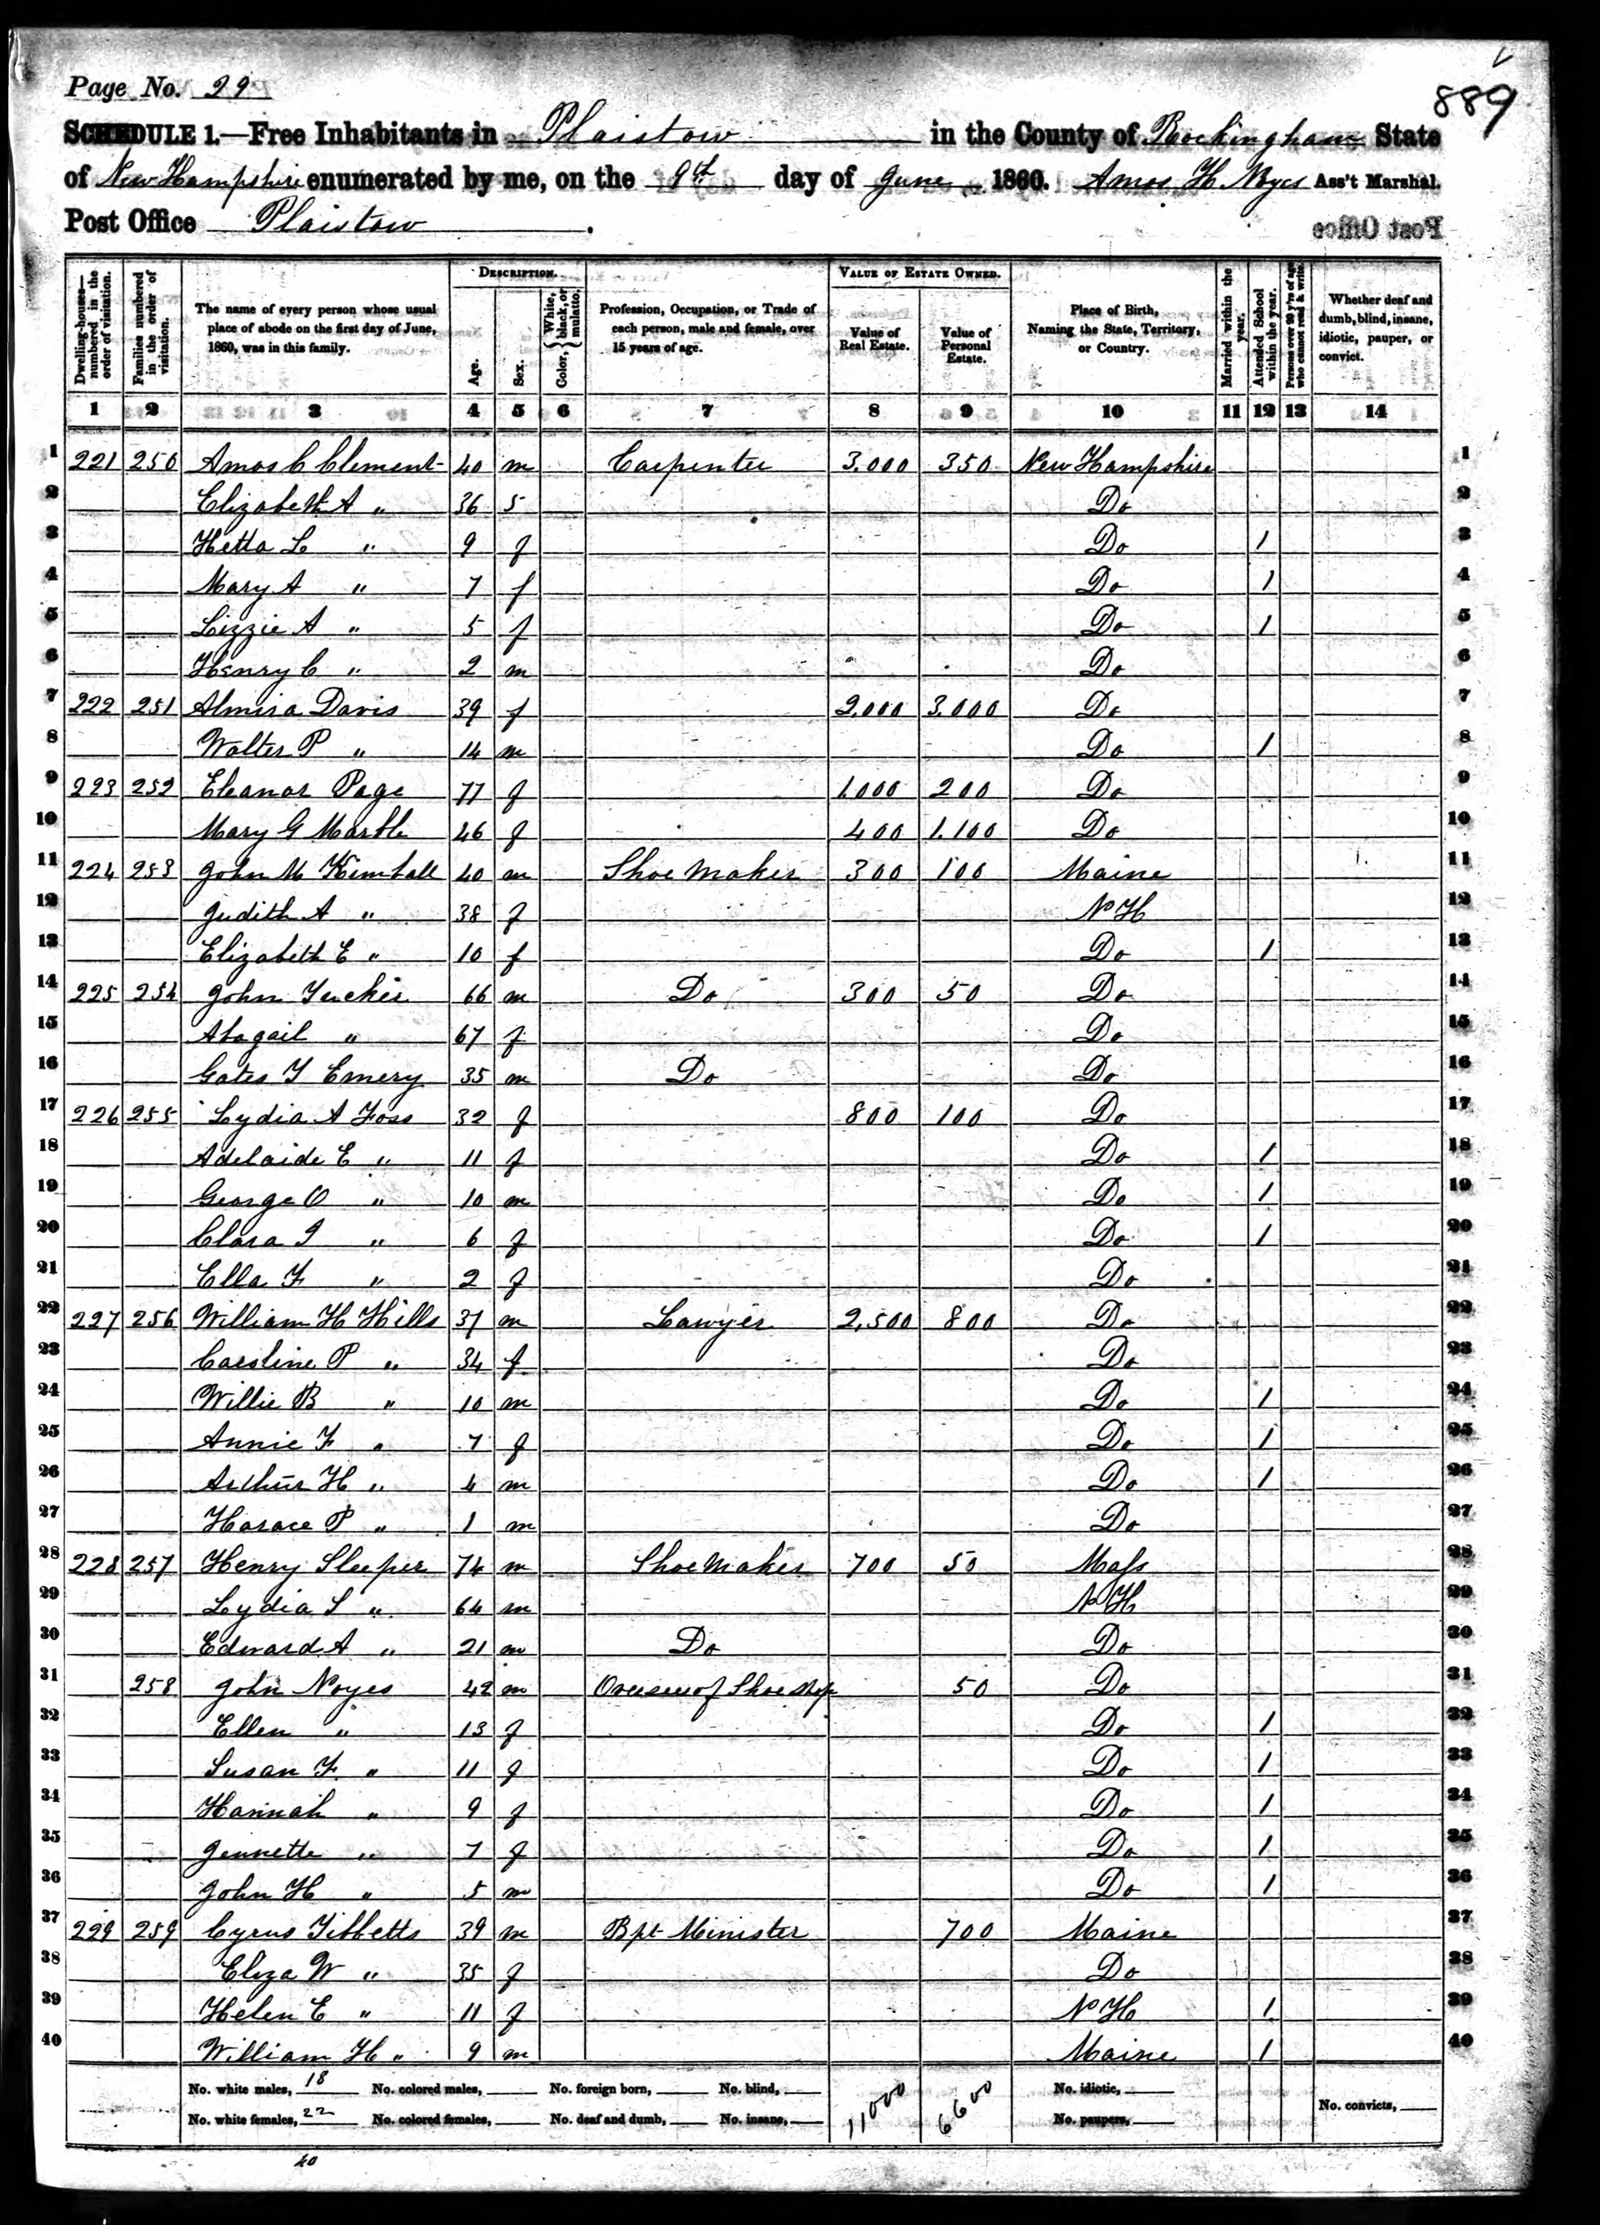 Page No. 29
889
SCHEDULE 1.—Free Inhabitants in Plaistow in the County of Rockingham State
of New Hampshire enumerated by me, on the 9th day of June 1860. Amos H Noyes Ass't Marshal.
Post Office Plaistow.
Dwelling-houses—numbered in the order of visitation. Families numbered in the order of visitation. The name of every person whose usual place of abode on the first day of June, 1860, was in this family. DESCRIPTION. Age. Sex. Color, {White, black, or mulatto. Profession, Occupation, or Trade of each person, male and female, over 15 years of age. VALUE OF ESTATE OWNED. Value of Real Estate. Value of Personal Estate. Place of Birth, Naming the State, Territory, or Country. Married within the year. Attended School within the year. Persons over 20 y'rs of age who cannot read & write. Whether deaf and dumb, blind, insane, idiotic, pauper, or convict.
1 2 3 4 5 6 7 8 9 10 11 12 13 14
1 221 250 Amos C Clement 40 m Carpenter 3,000 350 New Hampshire 1
2 Elizabeth A " 36 f Do 2
3 Hetta L " 9 f Do 1 3
4 Mary A " 7 f Do 1 4
5 Lizzie A " 5 f Do 1 5
6 Henry C " 2 m Do 6
7 222 251 Almira Davis 39 f 2,000 3,000 Do 7
8 Walter P " 14 m Do 1 8
9 223 252 Eleanor Page 77 f 1,000 200 Do 9
10 Mary G Marble 46 f 400 1,100 Do 10
11 224 253 John M Kimball 40 m Shoe Maker 300 100 Maine 11
12 Judith A " 38 f N H 12
13 Elizabeth E " 10 f Do 1 13
14 225 254 John Tucker 66 m Do 300 50 Do 14
15 Abagail " 67 f Do 15
16 Gates T Emery 35 m Do Do 16
17 226 255 Lydia A Foss 32 f 800 100 Do 17
18 Adelaide E " 11 f Do 1 18
19 George O " 10 m Do 1 19
20 Clara I " 6 f Do 1 20
21 Ella F " 2 f Do 21
22 227 256 William H Hills 37 m Lawyer 2,500 800 Do 22
23 Caroline P " 34 f Do 23
24 Willie B " 10 m Do 1 24
25 Annie F " 7 f Do 1 25
26 Arthur H " 4 m Do 1 26
27 Horace P " 1 m Do 27
28 228 257 Henry Sleeper 74 m Shoe Maker 700 50 Mass 28
29 Lydia S " 64 m N H 29
30 Edward A " 21 m Do Do 30
31 258 John Noyes 42 m Overseer of Shoe shop 50 Do 31
32 Ellen " 13 f Do 1 32
33 Susan F " 11 f Do 1 33
34 Hannah " 9 f Do 1 34
35 Jennette " 7 f Do 1 35
36 John H " 5 m Do 1 36
37 229 259 Cyrus Tibbetts 39 m Bpt Minister 700 Maine 37
38 Eliza W " 35 f Do 38
39 Helen E " 11 f N H 1 39
40 William H " 9 m Maine 1 40
No. white males, 18 No. colored males, No. foreign born, No. blind, 11000 6600 No. idiotic,
No. white females, 22 No. colored females, No. deaf and dumb, No. insane, No. paupers, No. convicts,
40